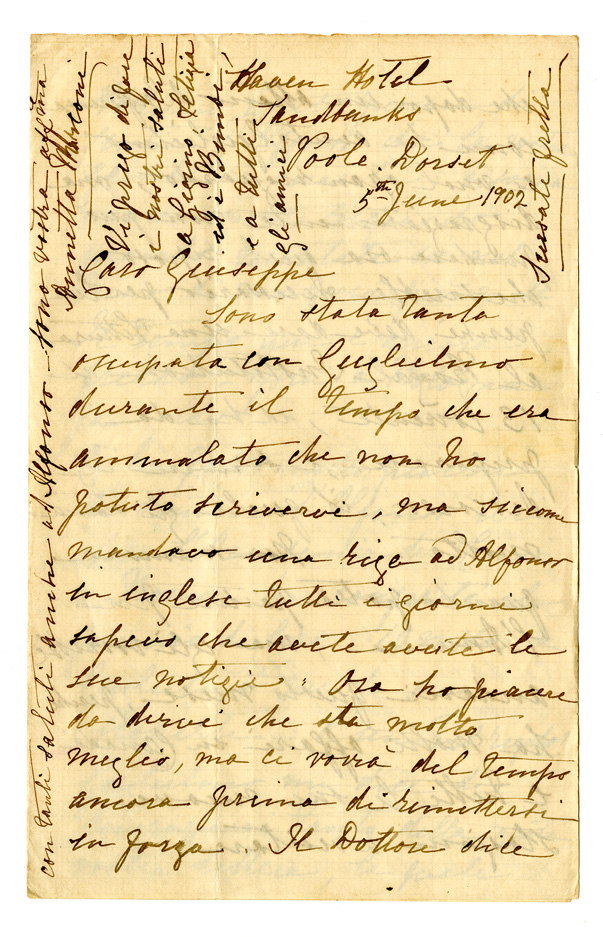 Haven Hotel
Sandbanks
Poole. Dorset
5th June 1902
Caro Giuseppe
Sono stata tanta
ocupata con Guglielmo
durante il tempo che era
ammalato che non ho
potuto scrivervi, ma siccome
mandavo una riga ad Alfonso
in inglese tutti i giorni
sapevo che avete avute le
sue notizie. Ora ho piacere
da dirvi che sta molto
meglio, ma ci vorrà del tempo
ancora prima di rimettersi
in forza. Il Dottore dice
con tanti saluti anche ad Alfonso - sono vostra affma
Annetta Marconi
Vi prego di fare
i nostri saluti
a Gigino, Letizia
ed i Bimbi
e a tutti
gli amici
Scusate fretta